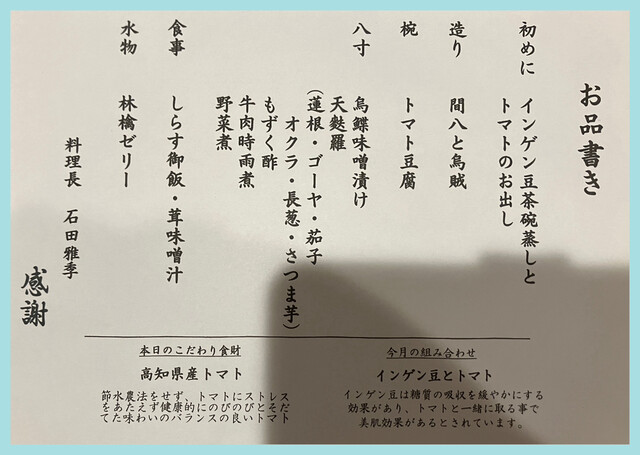 お品書き
初めに インゲン豆茶碗蒸しと
トマトのお出し
造り 間八と烏賊
椀 トマト豆腐
八寸 烏鰈味噌漬け
天麩羅
(蓮根・ゴーヤ・茄子
オクラ・長葱・さつま芋)
もずく酢
牛肉時雨煮
野菜煮
食事 しらす御飯・茸味噌汁
水物 林檎ゼリー
料理長 石田雅季
感謝
今月の組み合わせ
インゲン豆とトマト
インゲン豆は糖質の吸収を緩やかにする
効果があり、トマトと一緒に取る事で
美肌効果があるとされています。
本日のこだわり食財
高知県産トマト
節水農法をせず、トマトにストレス
をあたえず健康的にのびのびとそだ
てた味わいのバランスの良いトマト